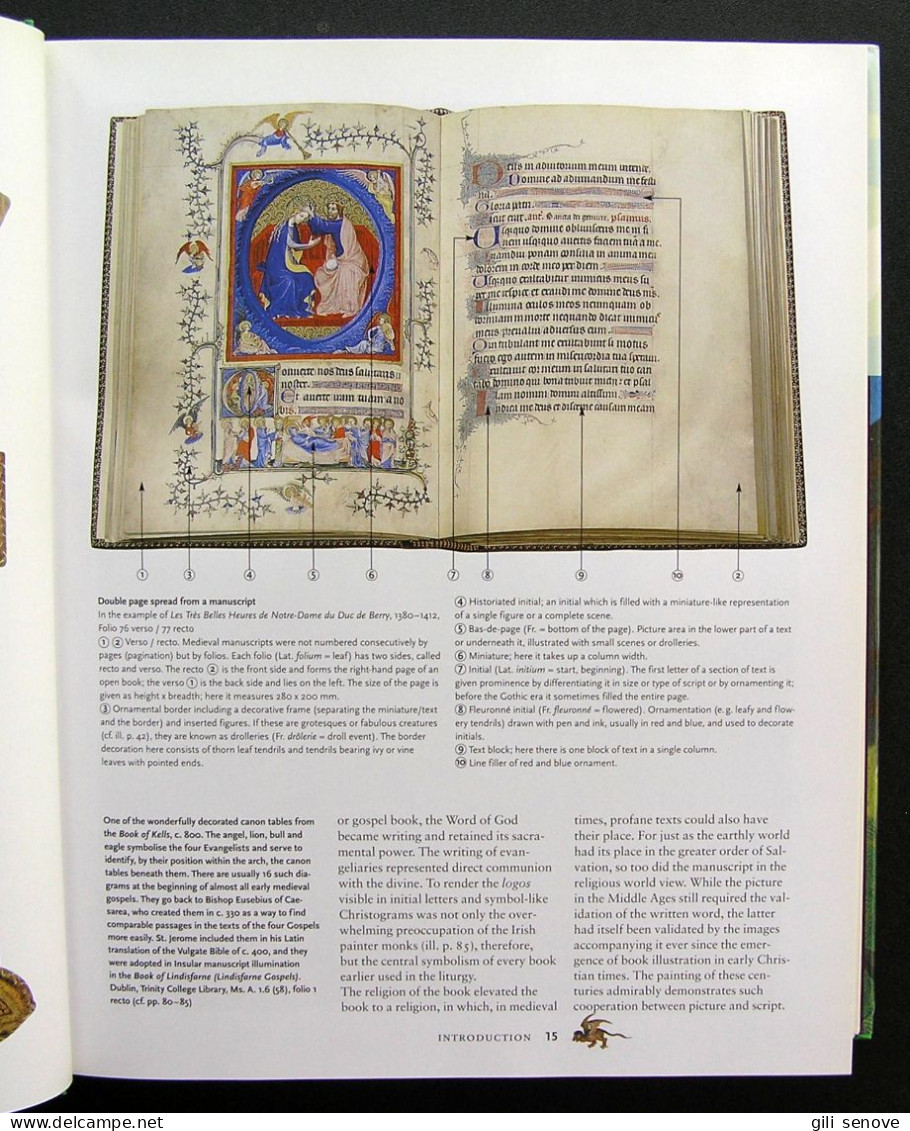 Deus in adiutorium meum intende.
Domine ad adiuvandum me festi
na.
Gloria patri.
Sicut erat. ant. psalmus.
Usquequo domine oblivisceris me in fi
nem usquequo avertis faciem tuam a me.
Quamdiu ponam consilia in anima mea
dolorem in corde meo per diem.
Usquequo exaltabitur inimicus meus su
per me respice et exaudi me domine deus meus.
Illumina oculos meos ne unquam ob
dormiam in morte nequando dicat inimicus
meus prevalui adversus eum.
Qui tribulant me exultabunt si motus
fuero ego autem in misericordia tua speravi.
Exultavit cor meum in salutari tuo can
tabo domino qui bona tribuit michi et psal
lam nomini domini altissimi.
Iudica me deus et discerne causam meam
Converte nos deus salutaris
noster.
Et averte iram tuam a no
bis.
① ③ ④ ⑤ ⑥ ⑦ ⑧ ⑨ ⑩ ②
Double page spread from a manuscript
In the example of Les Très Belles Heures de Notre-Dame du Duc de Berry, 1380–1412,
Folio 76 verso / 77 recto
① ② Verso / recto. Medieval manuscripts were not numbered consecutively by
pages (pagination) but by folios. Each folio (Lat. folium = leaf) has two sides, called
recto and verso. The recto ② is the front side and forms the right-hand page of an
open book; the verso ① is the back side and lies on the left. The size of the page is
given as height x breadth; here it measures 280 x 200 mm.
③ Ornamental border including a decorative frame (separating the miniature/text
and the border) and inserted figures. If these are grotesques or fabulous creatures
(cf. ill. p. 42), they are known as drolleries (Fr. drôlerie = droll event). The border
decoration here consists of thorn leaf tendrils and tendrils bearing ivy or vine
leaves with pointed ends.
④ Historiated initial; an initial which is filled with a miniature-like representation
of a single figure or a complete scene.
⑤ Bas-de-page (Fr. = bottom of the page). Picture area in the lower part of a text
or underneath it, illustrated with small scenes or drolleries.
⑥ Miniature; here it takes up a column width.
⑦ Initial (Lat. initium = start, beginning). The first letter of a section of text is
given prominence by differentiating it in size or type of script or by ornamenting it;
before the Gothic era it sometimes filled the entire page.
⑧ Fleuronné initial (Fr. fleuronné = flowered). Ornamentation (e. g. leafy and flow-
ery tendrils) drawn with pen and ink, usually in red and blue, and used to decorate
initials.
⑨ Text block; here there is one block of text in a single column.
⑩ Line filler of red and blue ornament.
One of the wonderfully decorated canon tables from
the Book of Kells, c. 800. The angel, lion, bull and
eagle symbolise the four Evangelists and serve to
identify, by their position within the arch, the canon
tables beneath them. There are usually 16 such dia-
grams at the beginning of almost all early medieval
gospels. They go back to Bishop Eusebius of Cae-
sarea, who created them in c. 330 as a way to find
comparable passages in the texts of the four Gospels
more easily. St. Jerome included them in his Latin
translation of the Vulgate Bible of c. 400, and they
were adopted in Insular manuscript illumination
in the Book of Lindisfarne (Lindisfarne Gospels).
Dublin, Trinity College Library, Ms. A. 1.6 (58), folio 1
recto (cf. pp. 80–85)
or gospel book, the Word of God
became writing and retained its sacra-
mental power. The writing of evan-
geliaries represented direct communion
with the divine. To render the logos
visible in initial letters and symbol-like
Christograms was not only the over-
whelming preoccupation of the Irish
painter monks (ill. p. 85), therefore,
but the central symbolism of every book
earlier used in the liturgy.
The religion of the book elevated the
book to a religion, in which, in medieval
times, profane texts could also have
their place. For just as the earthly world
had its place in the greater order of Sal-
vation, so too did the manuscript in the
religious world view. While the picture
in the Middle Ages still required the val-
idation of the written word, the latter
had itself been validated by the images
accompanying it ever since the emer-
gence of book illustration in early Chris-
tian times. The painting of these cen-
turies admirably demonstrates such
cooperation between picture and script.
INTRODUCTION 15
gili senove